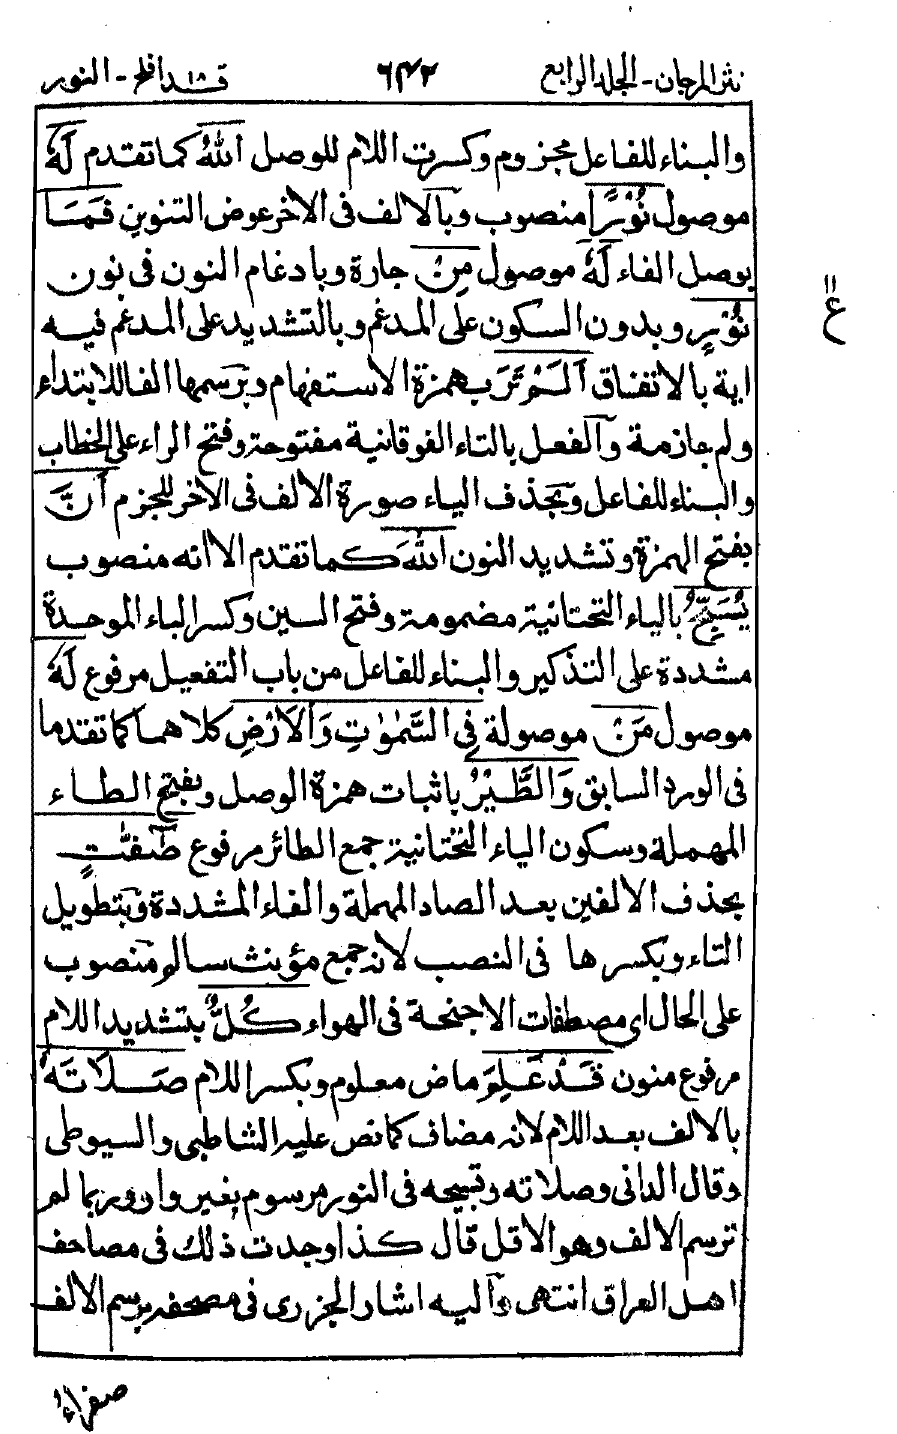 نثر المرجان - الجلد الرابع ٦٤٢ قد افلح ١٨ - النور
والبناء للفاعل مجزوم وكسرت اللام للوصل اللهُ كما تقدم لَهُ
موصول نُوْرًا منصوب وبالالف فى الاخر عوض التنوين فَمَا
بوصل الفاء لَهٗ موصول مِنْ جارة وبادغام النون فى نون
نُّوْرٍ وبدون السكون على المدغم وبالتشديد على المدغم فيه
اية بالاتفاق اَلَمْ تَرَ بهمزة الاستفهام وبرسمها الفا للابتداء
ولم جازمة والفعل بالتاء الفوقانية مفتوحة وفتح الراء على الخطاب
والبناء للفاعل وبحذف الياء صورة الالف فى الاخر للجزم اَنَّ
بفتح الهمزة وتشديد النون اللهَ كما تقدم الا انه منصوب
يُسَبِّحُ بالياء التحتانية مضمومة وفتح السين وكسر الباء الموحدة
مشددة على التذكير والبناء للفاعل من باب التفعيل مرفوع لَهٗ
موصول مَنْ موصولة فِى السَّمٰوٰتِ وَالْاَرْضِ كلاهما كما تقدما
فى الورد السابق وَالطَّيْرُ باثبات همزة الوصل وبفتح الطاء
المهملة وسكون الياء التحتانية جمع الطائر مرفوع صٰٓفّٰتٍ
بحذف الالفين بعد الصاد المهملة والفاء المشددة وبتطويل
التاء وبكسرها فى النصب لانه جمع مؤنث سالم منصوب
على الحال اى مصطفات الاجنحة فى الهواء كُلٌّ بتشديد اللام
مرفوع منون قَدْ عَلِمَ ماض معلوم وبكسر اللام صَلَاتَهٗ
بالالف بعد اللام لانه مضاف كما نص عليه الشاطبى والسيوطى
وقال الدانى وصلاته وتسبيحه فى النور مرسوم بغير واو وربما لم
ترسم الالف وهو الاقل قال كذا وجدت ذلك فى مصاحف
اهل العراق انتهى واليه اشار الجزرى فى مصحفه برسم الالف
ع
١١
صفراء